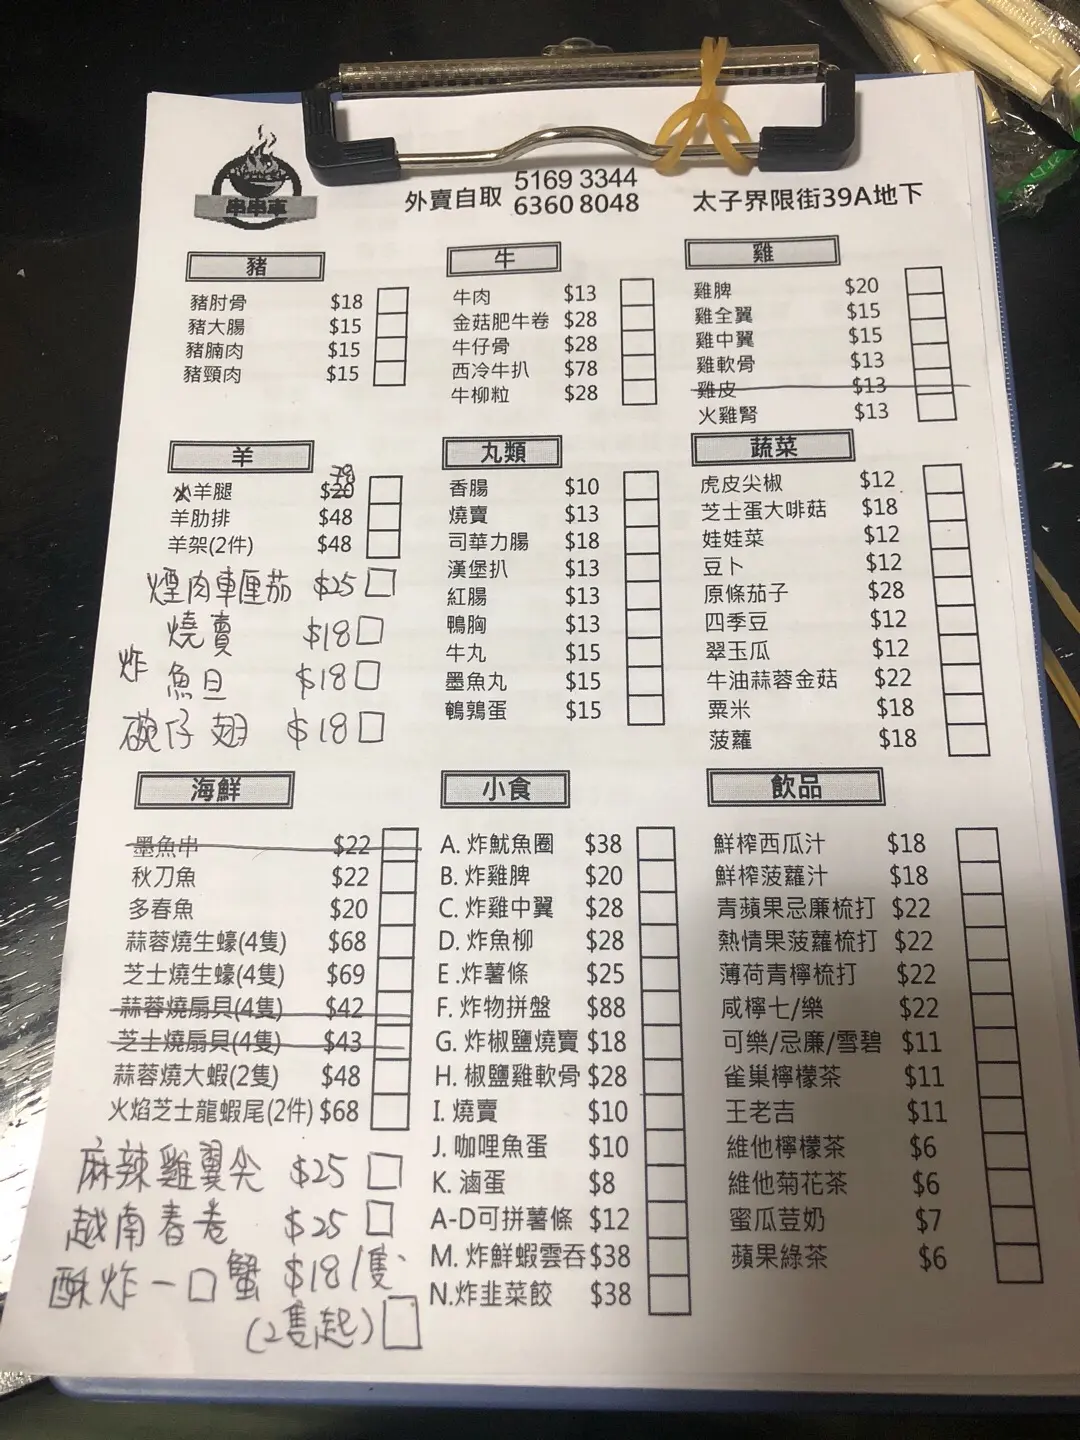 串串車
外賣自取 5169 3344
6360 8048
太子界限街39A地下
豬
豬肘骨 $18
豬大腸 $15
豬腩肉 $15
豬頸肉 $15
牛
牛肉 $13
金菇肥牛卷 $28
牛仔骨 $28
西冷牛扒 $78
牛柳粒 $28
雞
雞脾 $20
雞全翼 $15
雞中翼 $15
雞軟骨 $13
雞皮 $13
火雞腎 $13
羊
羊腿 $20
羊肋排 $48
羊架(2件) $48
煙肉車厘茄 $25
燒賣 $18
炸魚旦 $18
碗仔翅 $18
丸類
香腸 $10
燒賣 $13
司華力腸 $18
漢堡扒 $13
紅腸 $13
鴨胸 $13
牛丸 $15
墨魚丸 $15
鵪鶉蛋 $15
蔬菜
虎皮尖椒 $12
芝士蛋大啡菇 $18
娃娃菜 $12
豆卜 $12
原條茄子 $28
四季豆 $12
翠玉瓜 $12
牛油蒜蓉金菇 $22
粟米 $18
菠蘿 $18
海鮮
墨魚串 $22
秋刀魚 $22
多春魚 $20
蒜蓉燒生蠔(4隻) $68
芝士燒生蠔(4隻) $69
蒜蓉燒扇貝(4隻) $42
芝士燒扇貝(4隻) $43
蒜蓉燒大蝦(2隻) $48
火焰芝士龍蝦尾(2件) $68
麻辣雞翼尖 $25
越南春卷 $25
酥炸一口蟹 $18/隻
(2隻起)
小食
A. 炸魷魚圈 $38
B. 炸雞脾 $20
C. 炸雞中翼 $28
D. 炸魚柳 $28
E .炸薯條 $25
F. 炸物拼盤 $88
G. 炸椒鹽燒賣 $18
H. 椒鹽雞軟骨 $28
I. 燒賣 $10
J. 咖哩魚蛋 $10
K. 滷蛋 $8
A-D可拼薯條 $12
M. 炸鮮蝦雲吞 $38
N.炸韭菜餃 $38
飲品
鮮榨西瓜汁 $18
鮮榨菠蘿汁 $18
青蘋果忌廉梳打 $22
熱情果菠蘿梳打 $22
薄荷青檸梳打 $22
咸檸七/樂 $22
可樂/忌廉/雪碧 $11
雀巢檸檬茶 $11
王老吉 $11
維他檸檬茶 $6
維他菊花茶 $6
蜜瓜荳奶 $7
蘋果綠茶 $6